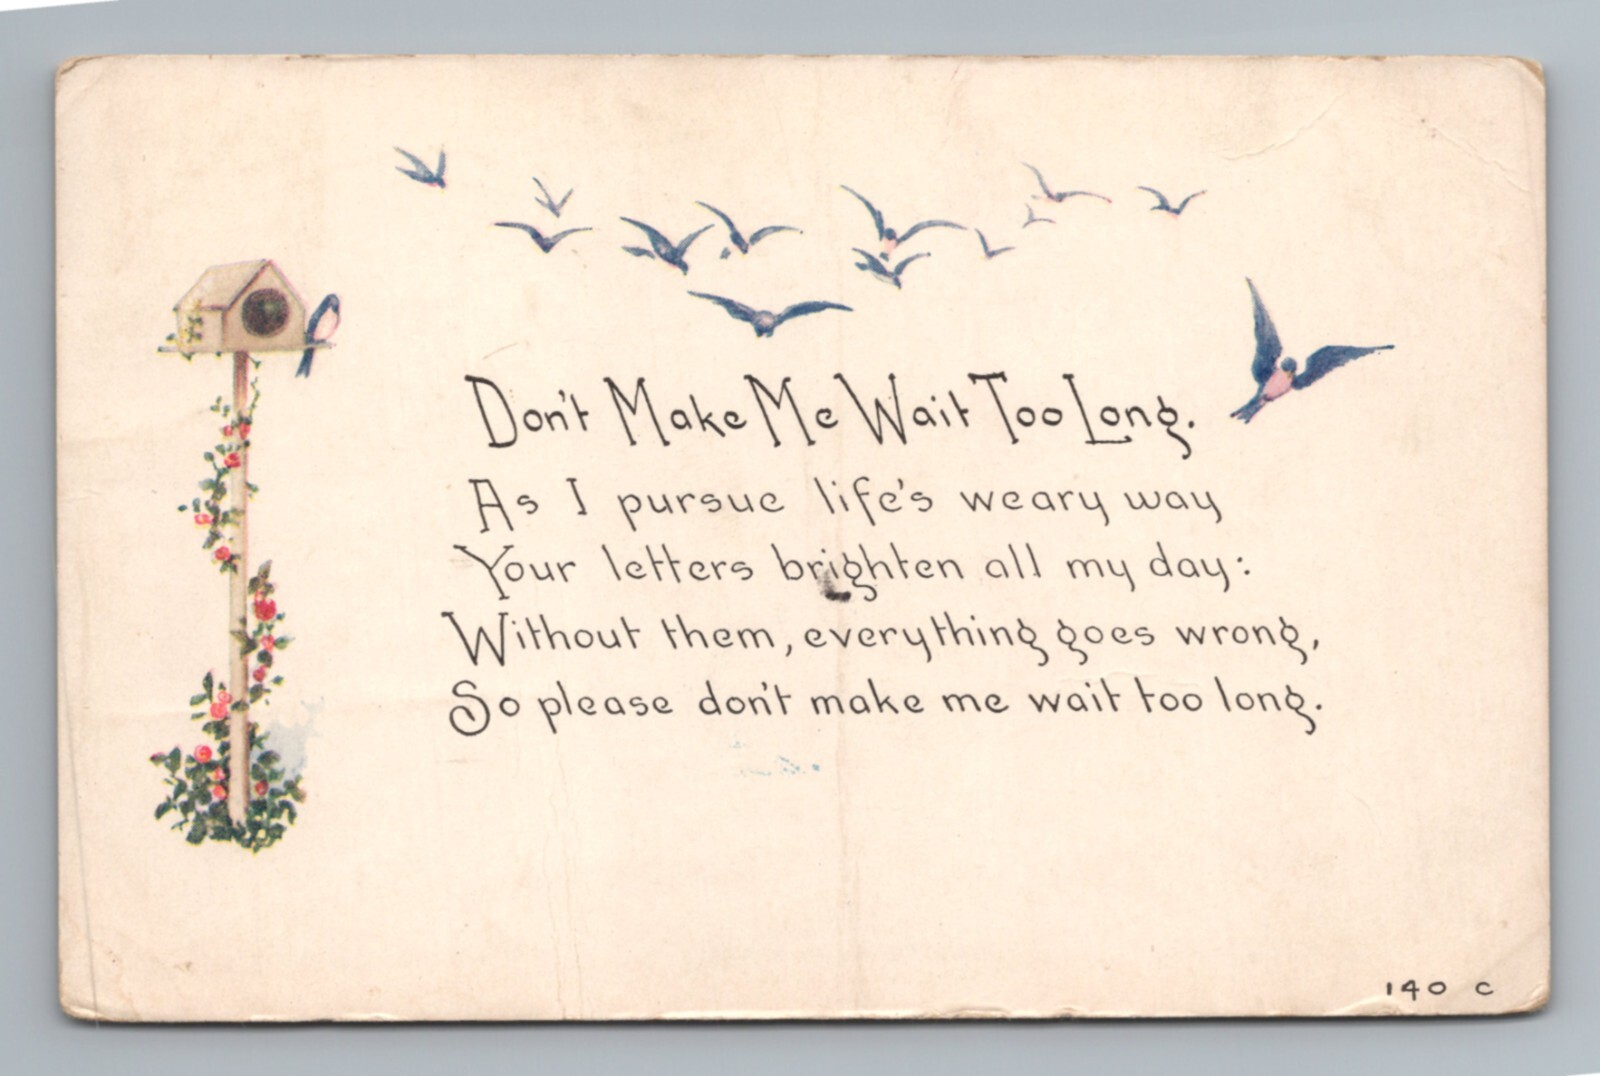 Don't Make Me Wait Too Long.
As I pursue life's weary way
Your letters brighten all my day:
Without them, everything goes wrong,
So please don't make me wait too long.
140 C